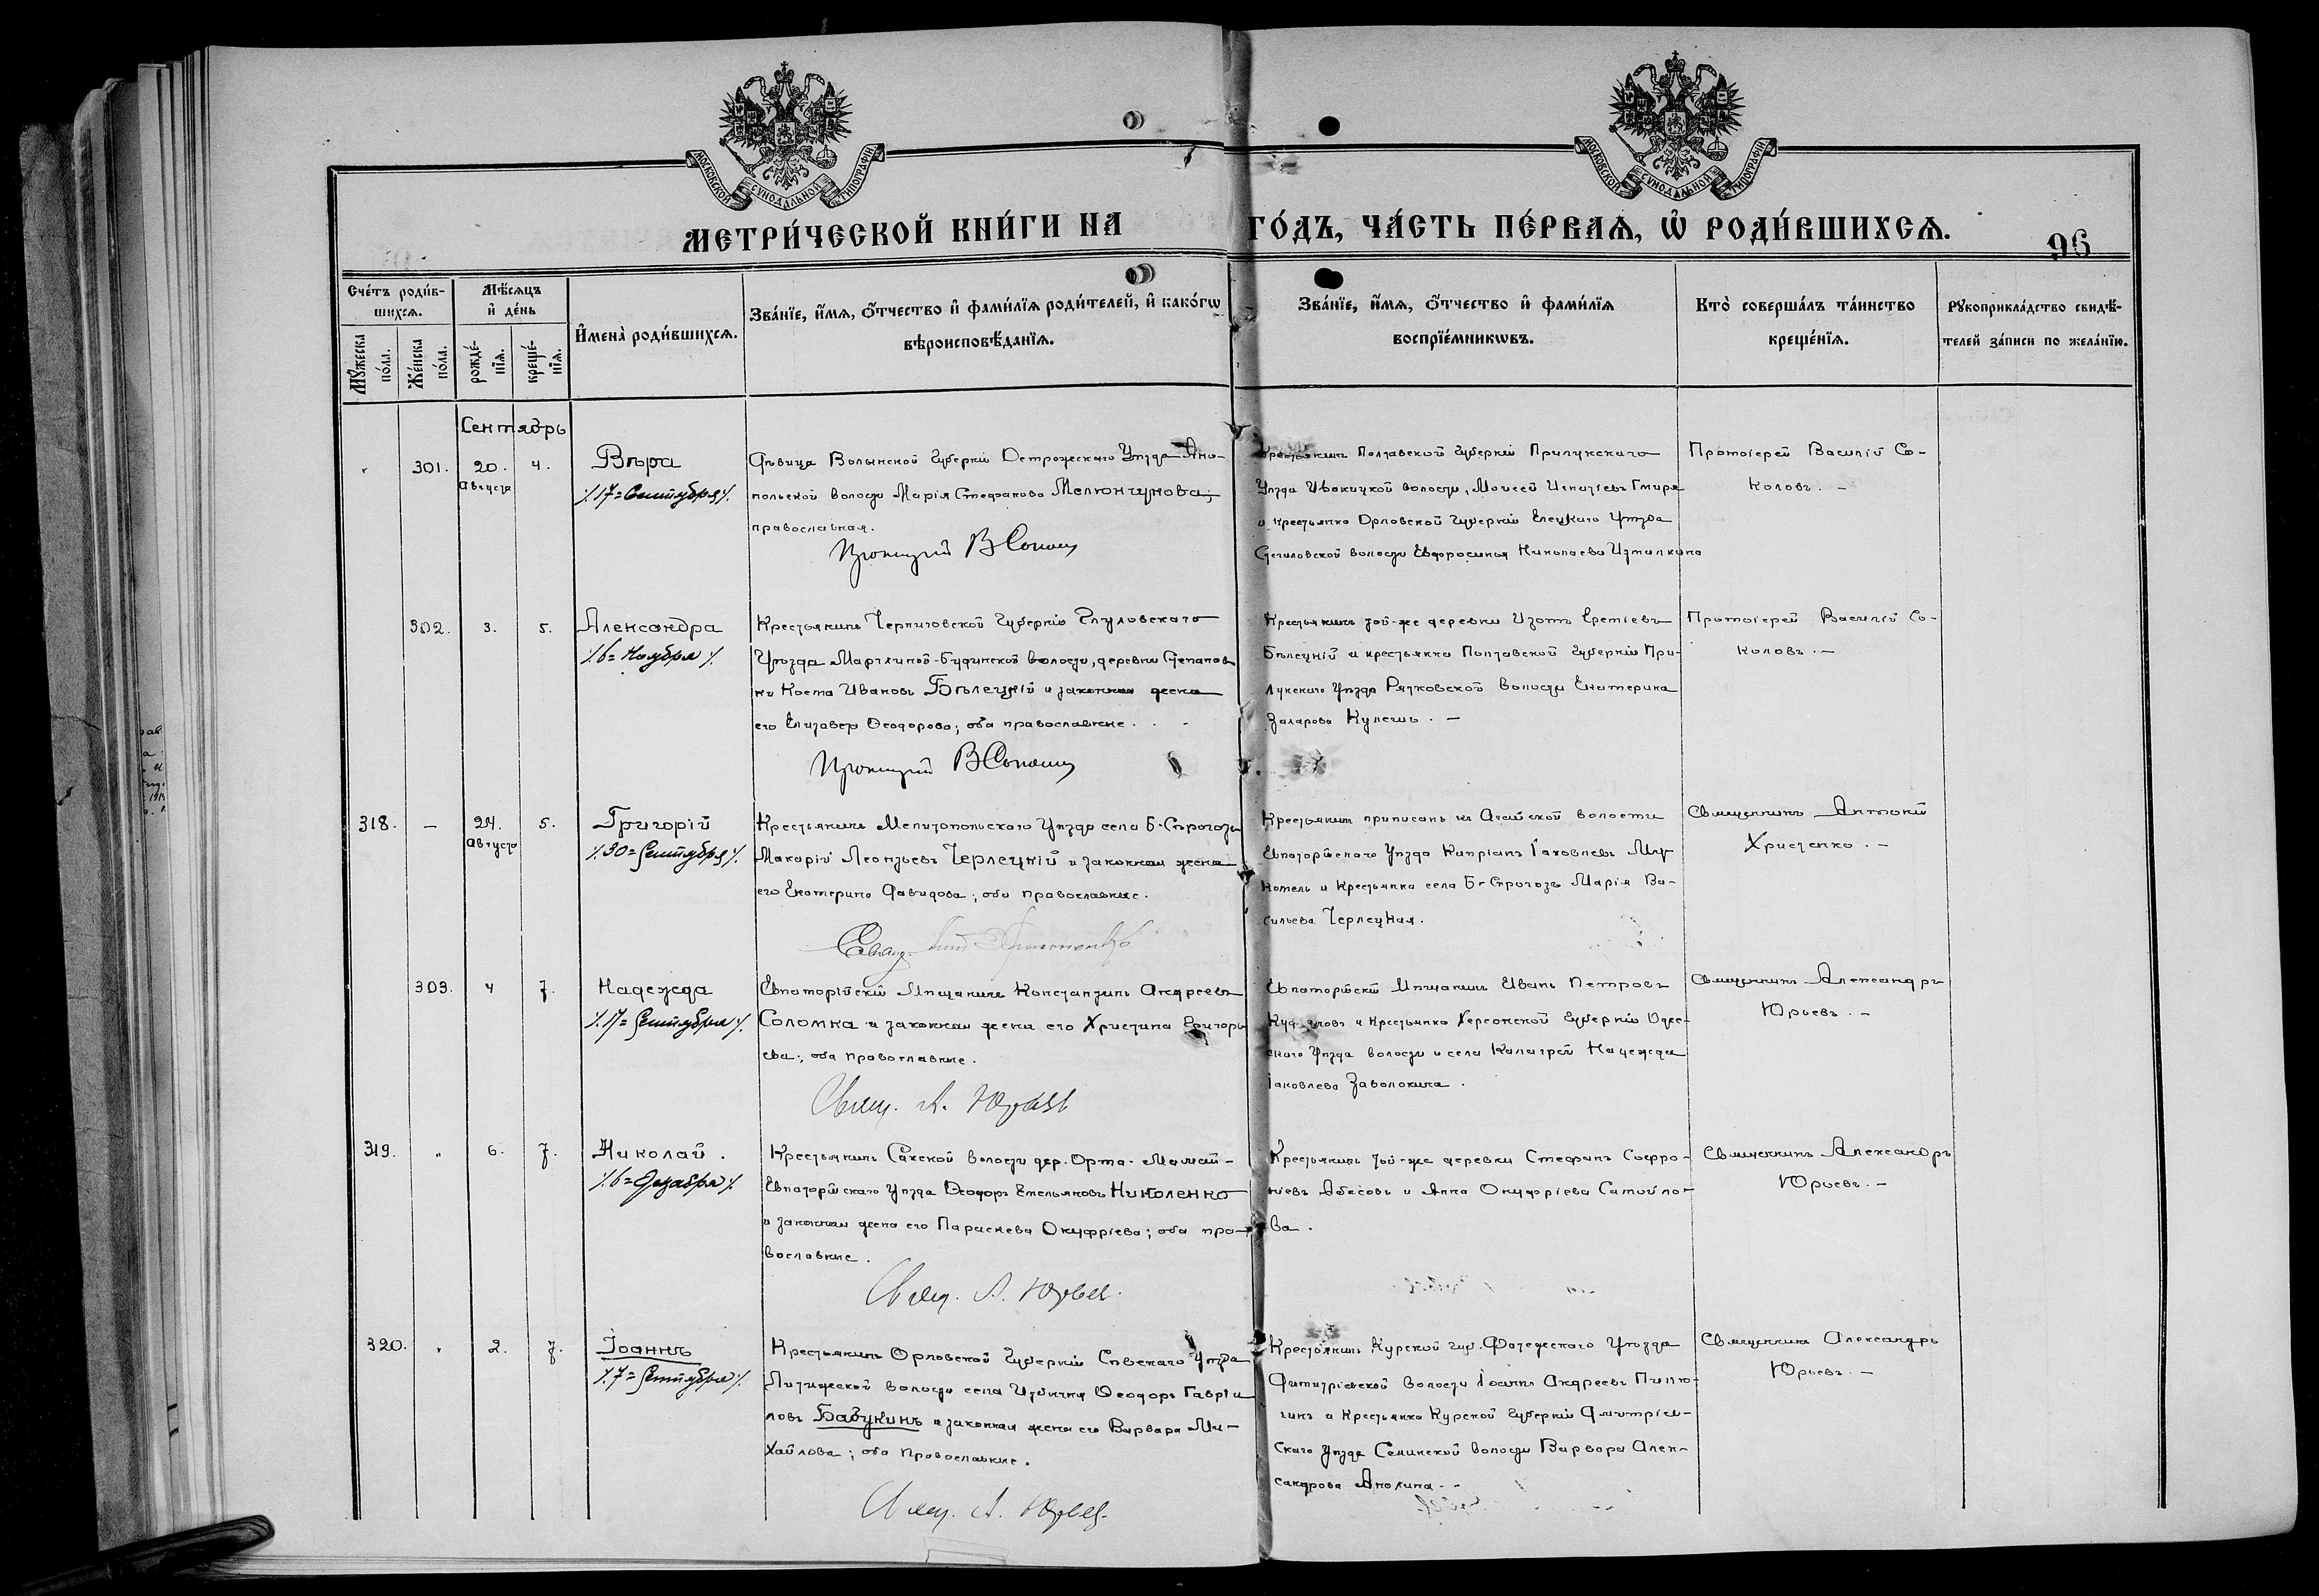 МОСКОВСКОЙ СѴНОДАЛЬНОЙ ТИПОГРАФІИ
МОСКОВСКОЙ СѴНОДАЛЬНОЙ ТИПОГРАФІИ
МЕТРИ́ЧЕСКОЙ КНИ́ГИ НА ГО́ДЪ, ЧА́СТЬ ПЕ́РВАѦ, Ѡ҆ РОДИ́ВШИХСѦ.
96
Сче́тъ роди́в-
шихсѧ.
Мꙋ́жеска по́ла.
Же́нска по́ла.
Мѣ́сѧцъ и҆ де́нь
рожде́-нїѧ.
креще́-нїѧ.
И҆мена̀ роди́вшихсѧ.
Зва́нїе, и҆́мѧ, ѻ҆́тчество и҆ фами́лїѧ роди́телей, и҆ како́гѡ
вѣроисповѣ́данїѧ.
Зва́нїе, и҆́мѧ, ѻ҆́тчество и҆ фами́лїѧ
воспрїе́мникѡвъ.
Кто̀ соверша́лъ та́инство
креще́нїѧ.
Рꙋкоприкла́дство свидѣ́-
телей за́писи по жела́нїю.
Сентябрь
" 301. 20. Августа 4.
Вѣра
/. 17 = Сентября /.
Дѣвица Волынской Губерніи Острожскаго Уѣзда Ано-
польской волости Марія Стефанова Мелюнчукова;
православная.
Протоіерей В Соколов
Крестьянинъ Полтавской Губерніи Прилукскаго
Уѣзда Иваницкой волости, Моисей Игнатіевъ Гмиря
и крестьянка Орловской Губерніи Елецкаго Уѣзда
волости Евфросинья Николаева Измалкина
Протоіерей Василій Со-
коловъ. -
302. 3. 5.
Александра
/. 6 = Ноября /.
Крестьянинъ Черниговской Губерніи Глуховскаго
Уѣзда Марчихиной-Будинской волости, деревни Степанов
ки Косма Ивановъ Бѣлецкій и законная жена
его Елизавета Ѳеодорова; оба православные.
Протоіерей В Соколов
Крестьянинъ той-же деревни Изотъ
Бѣлецкій и крестьянка Полтавской Губерніи При-
лукскаго Уѣзда Рячковской волости Екатерина
Захарова Кулешъ. -
Протоіерей Василій Со-
коловъ. -
318. - 24. Августа 5.
Григорій
/. 30 = Сентября /.
Крестьянинъ Мелитопольскаго Уѣзда села Б-Сѣрогозъ
Макарій Леонтьевъ Черлецкій и законная жена
его Екатерина Давидова; оба православные.
Свящ. Христенко
Крестьянинъ приписанъ къ волости
Евпаторійскаго Уѣзда Кипріанъ Іаковлевъ
и Крестьянка села Б-Сѣрогозъ Марія Ва-
сильева Черлецкая.
Священникъ Антоній
Христенко. -
303. 4 7.
Надежда
/. 17 = Сентября /.
Евпаторійскій Мѣщанинъ Константинъ Андреевъ
Соломка и законная жена его Христина Григорь
ева; оба православные.
Свящ. А. Юрьев
Евпаторійскій Мѣщанинъ Иванъ Петровъ
и Крестьянка Херсонской Губерніи Одес-
скаго Уѣзда волости и села Калаглей Надежда
Іаковлева Заволокина.
Священникъ Александръ
Юрьевъ. -
319. " 6. 7.
Николай.
/. 6 = Декабря /.
Крестьянинъ Сакской волости дер. Орта-Мамай-
Евпаторійскаго Уѣзда Ѳеодоръ Емельяновъ Николенко
и законная жена его Параскева Онуфріева; оба пра-
вославные.
Свящ. А. Юрьев.
Крестьянинъ той-же деревни Стефанъ Софро-
ніевъ Абасовъ и Анна Онуфріева Самойло-
ва.
Священникъ Александръ
Юрьевъ. -
320. " 2. 7.
Іоаннъ
/. 7 = Сентября /.
Крестьянинъ Орловской Губерніи Сѣвскаго Уѣзда
волости села Избични Ѳеодоръ Гаврiи
ловъ Бабукинъ и законная жена его Варвара Ми-
хайлова; оба Православные.
Свящ. А. Юрьев.
Крестьянинъ Курской губ. Фатежскаго Уѣзда
Димитріевской волости Іоаннъ Андреевъ
и Крестьянка Курской Губерніи Дмитріев-
скаго Уѣзда Селинской волости Варвара Алек-
сандрова Анохина. -
Священникъ Александръ
Юрьевъ. -